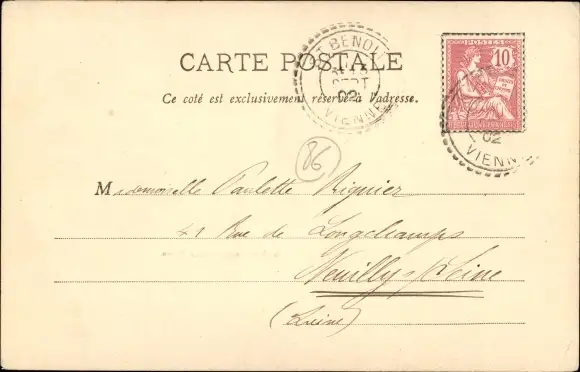 Sᵗ BENOIT
SEPT
02
VIENNE
POSTES
10
02
VIENNE
CARTE POSTALE
Ce coté est exclusivement réservé à l'adresse.
86
Mademoiselle Paulette Riquier
41 Rue de Longchamps
Neuilly s/ Seine
(Seine)